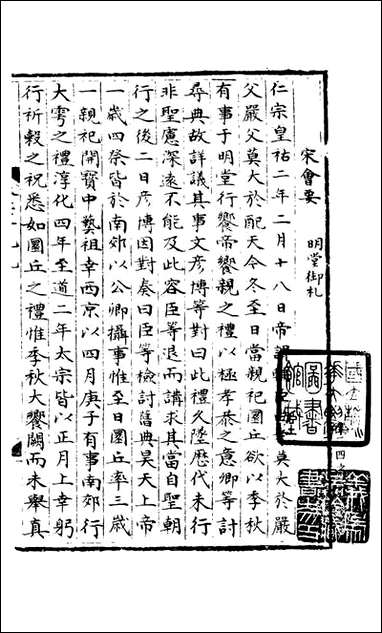 宋會要
明堂御札
仁宗皇祐二年二月十八日帝謂輔臣曰孝莫大於嚴
父嚴父莫大於配天今冬至日當親祀圜丘欲以季秋
有事于明堂行饗帝饗親之禮以極孝恭之意卿等討
尋典故詳議其事文彦博等對曰此禮久墜歷代未行
非聖慮深遠不能及此容臣等退而講求其當自聖朝
行之後二日彦博因對奏曰臣等檢討舊典昊天上帝
一歲四祭皆於南郊以公卿攝事惟至日圜丘率三歲
一親祀開寶中藝祖幸西京以四月庚子有事南郊行
大雩之禮淳化四年至道二年太宗皆以正月上辛躬
行祈穀之祝悉如圜丘之禮惟季秋大饗闕而未舉真